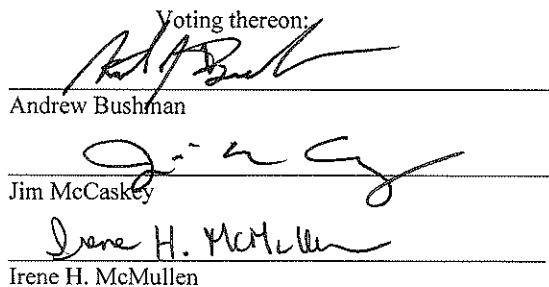 Voting thereon:
Andrew Bushman
Jim McCaskey
Irene H. McMullen
Irene H. McMullen